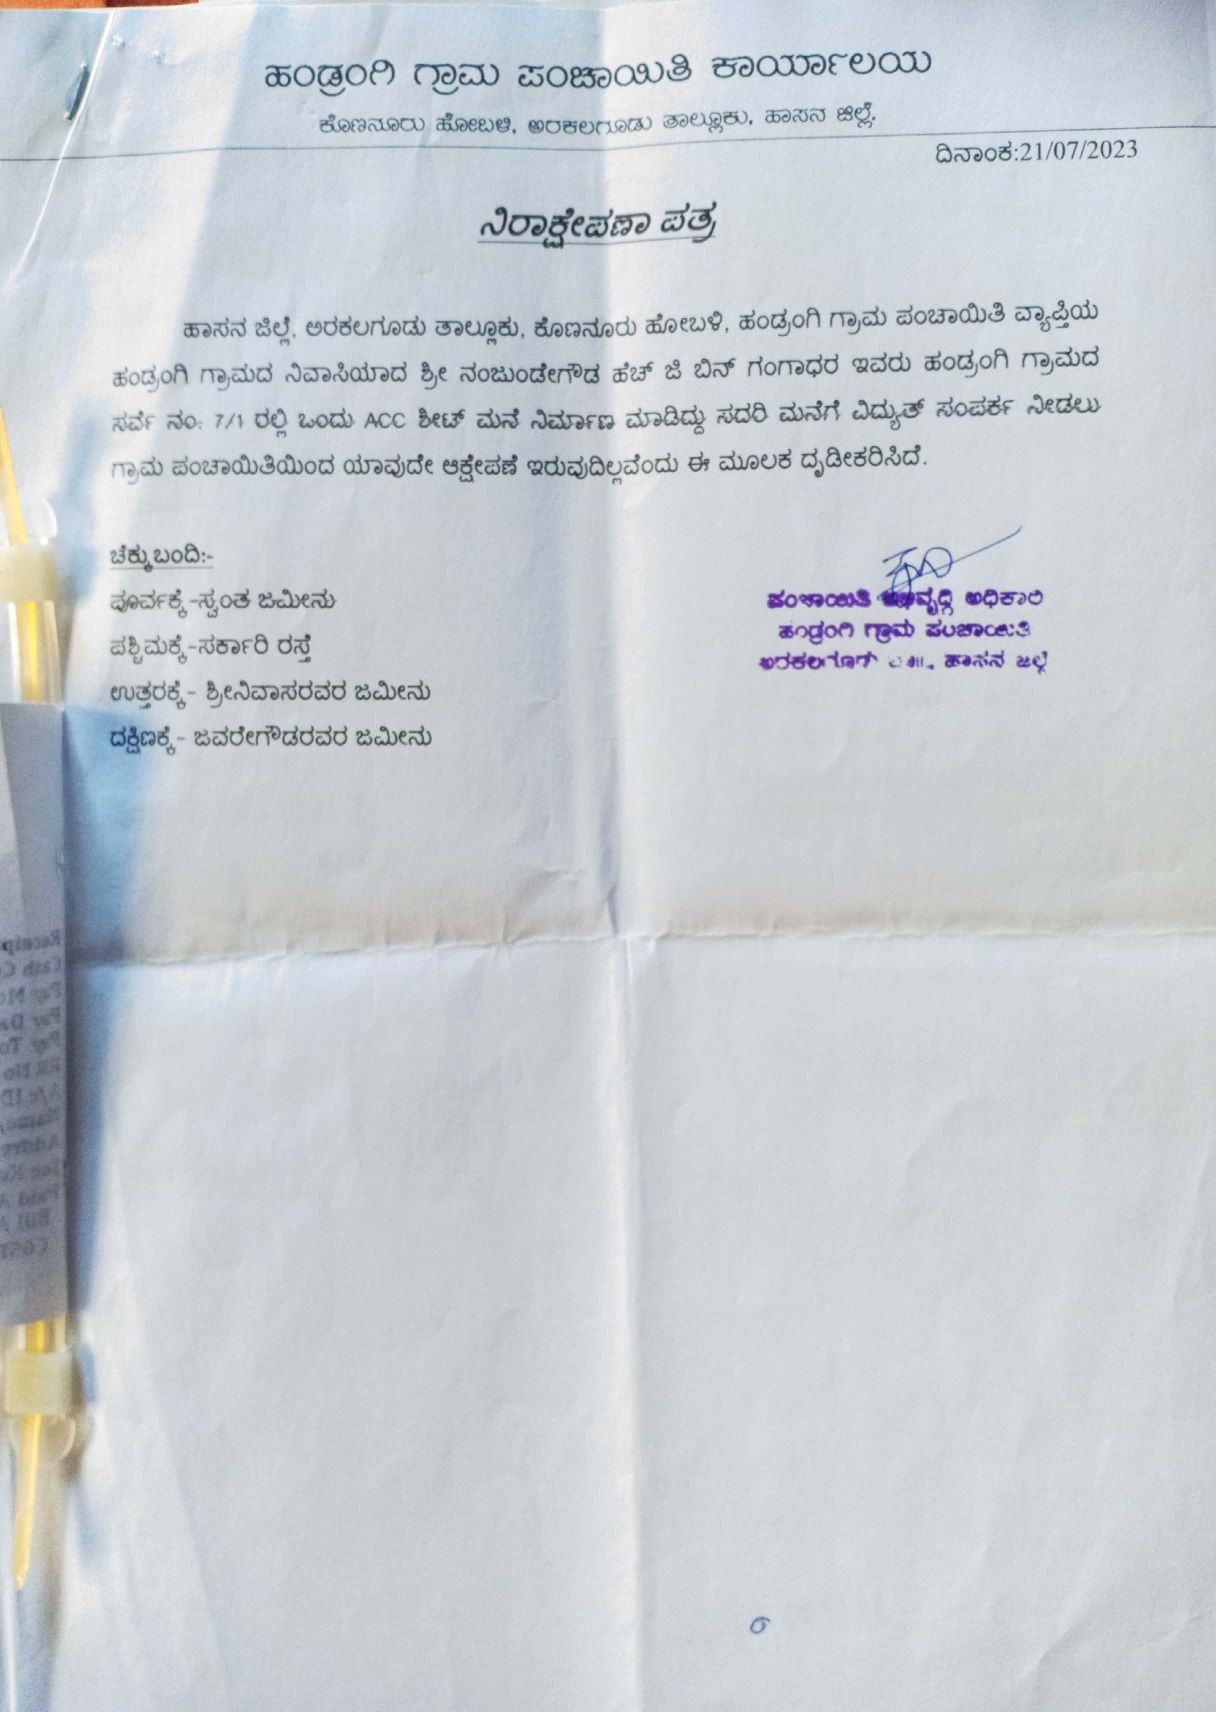 ಹಂಡ್ರಂಗಿ ಗ್ರಾಮ ಪಂಚಾಯಿತಿ ಕಾರ್ಯಾಲಯ
ಕೊಣನೂರು ಹೋಬಳಿ, ಅರಕಲಗೂಡು ತಾಲ್ಲೂಕು, ಹಾಸನ ಜಿಲ್ಲೆ.
ದಿನಾಂಕ:21/07/2023
ನಿರಾಕ್ಷೇಪಣಾ ಪತ್ರ
ಹಾಸನ ಜಿಲ್ಲೆ, ಅರಕಲಗೂಡು ತಾಲ್ಲೂಕು, ಕೊಣನೂರು ಹೋಬಳಿ, ಹಂಡ್ರಂಗಿ ಗ್ರಾಮ ಪಂಚಾಯಿತಿ ವ್ಯಾಪ್ತಿಯ
ಹಂಡ್ರಂಗಿ ಗ್ರಾಮದ ನಿವಾಸಿಯಾದ ಶ್ರೀ ನಂಜುಂಡೇಗೌಡ ಹೆಚ್ ಜಿ ಬಿನ್ ಗಂಗಾಧರ ಇವರು ಹಂಡ್ರಂಗಿ ಗ್ರಾಮದ
ಸರ್ವೆ ನಂ: 7/1 ರಲ್ಲಿ ಒಂದು ACC ಶೀಟ್ ಮನೆ ನಿರ್ಮಾಣ ಮಾಡಿದ್ದು ಸದರಿ ಮನೆಗೆ ವಿದ್ಯುತ್ ಸಂಪರ್ಕ ನೀಡಲು
ಗ್ರಾಮ ಪಂಚಾಯಿತಿಯಿಂದ ಯಾವುದೇ ಆಕ್ಷೇಪಣೆ ಇರುವುದಿಲ್ಲವೆಂದು ಈ ಮೂಲಕ ದೃಡೀಕರಿಸಿದೆ.
ಚೆಕ್ಕುಬಂದಿ:-
ಪೂರ್ವಕ್ಕೆ-ಸ್ವಂತ ಜಮೀನು
ಪಶ್ಚಿಮಕ್ಕೆ-ಸರ್ಕಾರಿ ರಸ್ತೆ
ಉತ್ತರಕ್ಕೆ- ಶ್ರೀನಿವಾಸರವರ ಜಮೀನು
ದಕ್ಷಿಣಕ್ಕೆ- ಜವರೇಗೌಡರವರ ಜಮೀನು
ಪಂಚಾಯಿತಿ ಅಭಿವೃದ್ಧಿ ಅಧಿಕಾರಿ
ಹಂಡ್ರಂಗಿ ಗ್ರಾಮ ಪಂಚಾಯಿತಿ
ಅರಕಲಗೂಡ್ ಹಾಸನ ಜಿಲ್ಲೆ